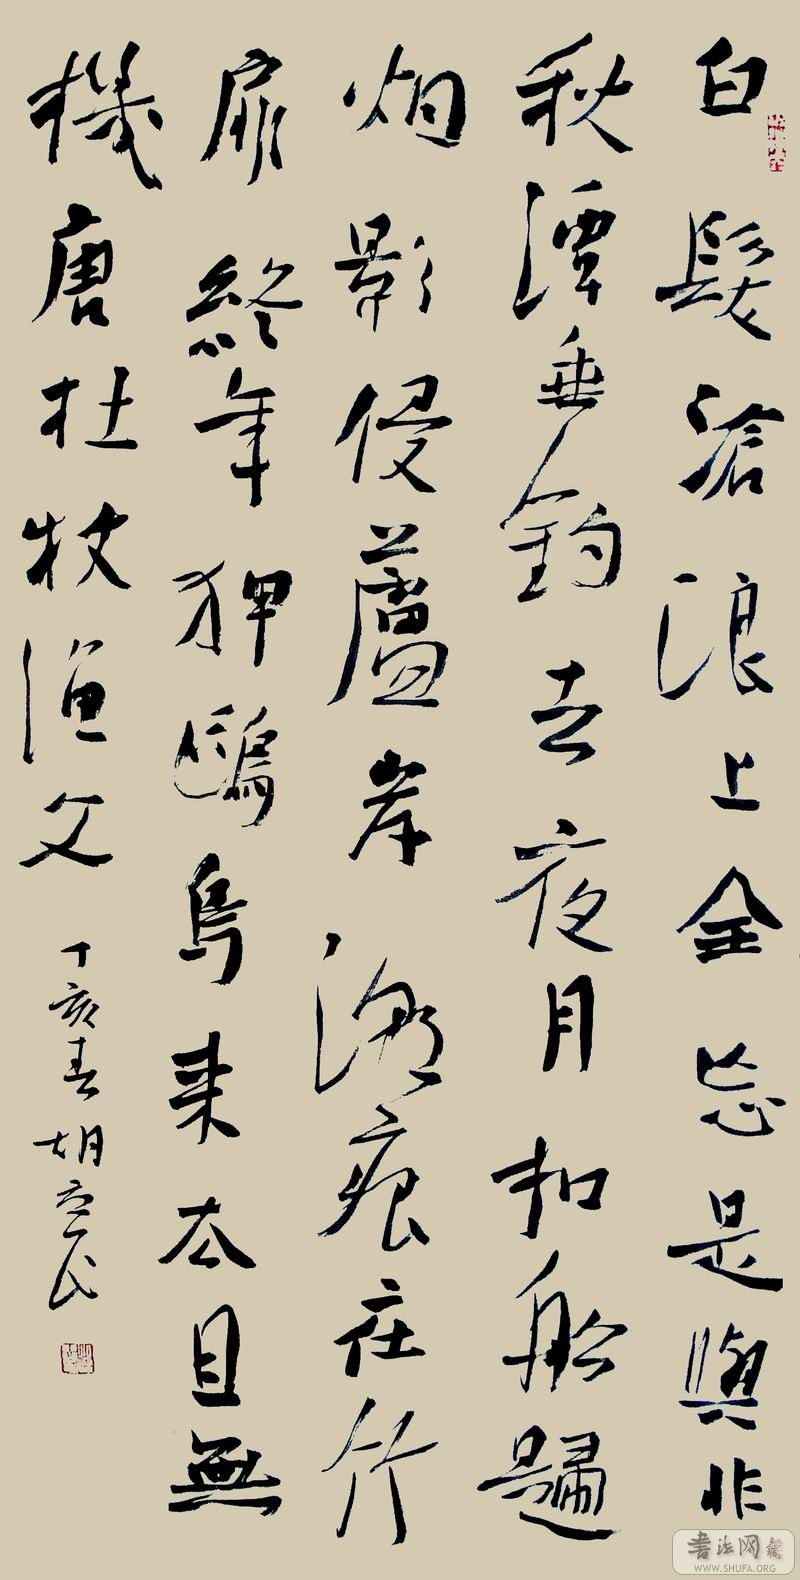 白髮滄浪上全忘是與非
秋潭垂釣去夜月扣船歸
烟影侵蘆岸潮痕在竹
扉終年狎鷗鳥來去且無
機唐杜牧漁父
丁亥春胡民
書法网
WWW.SHUFA.ORG